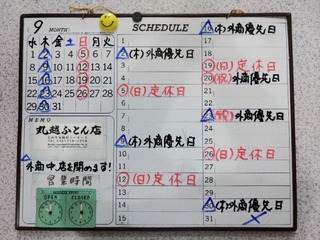 9 MONTH
SCHEDULE
水 木 金 土 日 月 火
1 2 3 4 5 6 7
8 9 10 11 12 13 14
15 16 17 18 19 20 21
22 23 24 25 26 27 28
29 30 31
MEMO
丸越ふとん店
外商中、店を閉めます!
営業時間
OPEN CLOSED
1
2 (木)外商優先日
3
4
5 (日)定休日
6
7
8
9 (木)外商優先日
10
11
12 (日)定休日
13
14
15
16 (木)外商優先日
17
18
19 (日)定休日
20 (祝)外商優先日
21
22
23 (祝)外商優先日
24
25
26 (日)定休日
27
28
29
30 (木)外商優先日
31